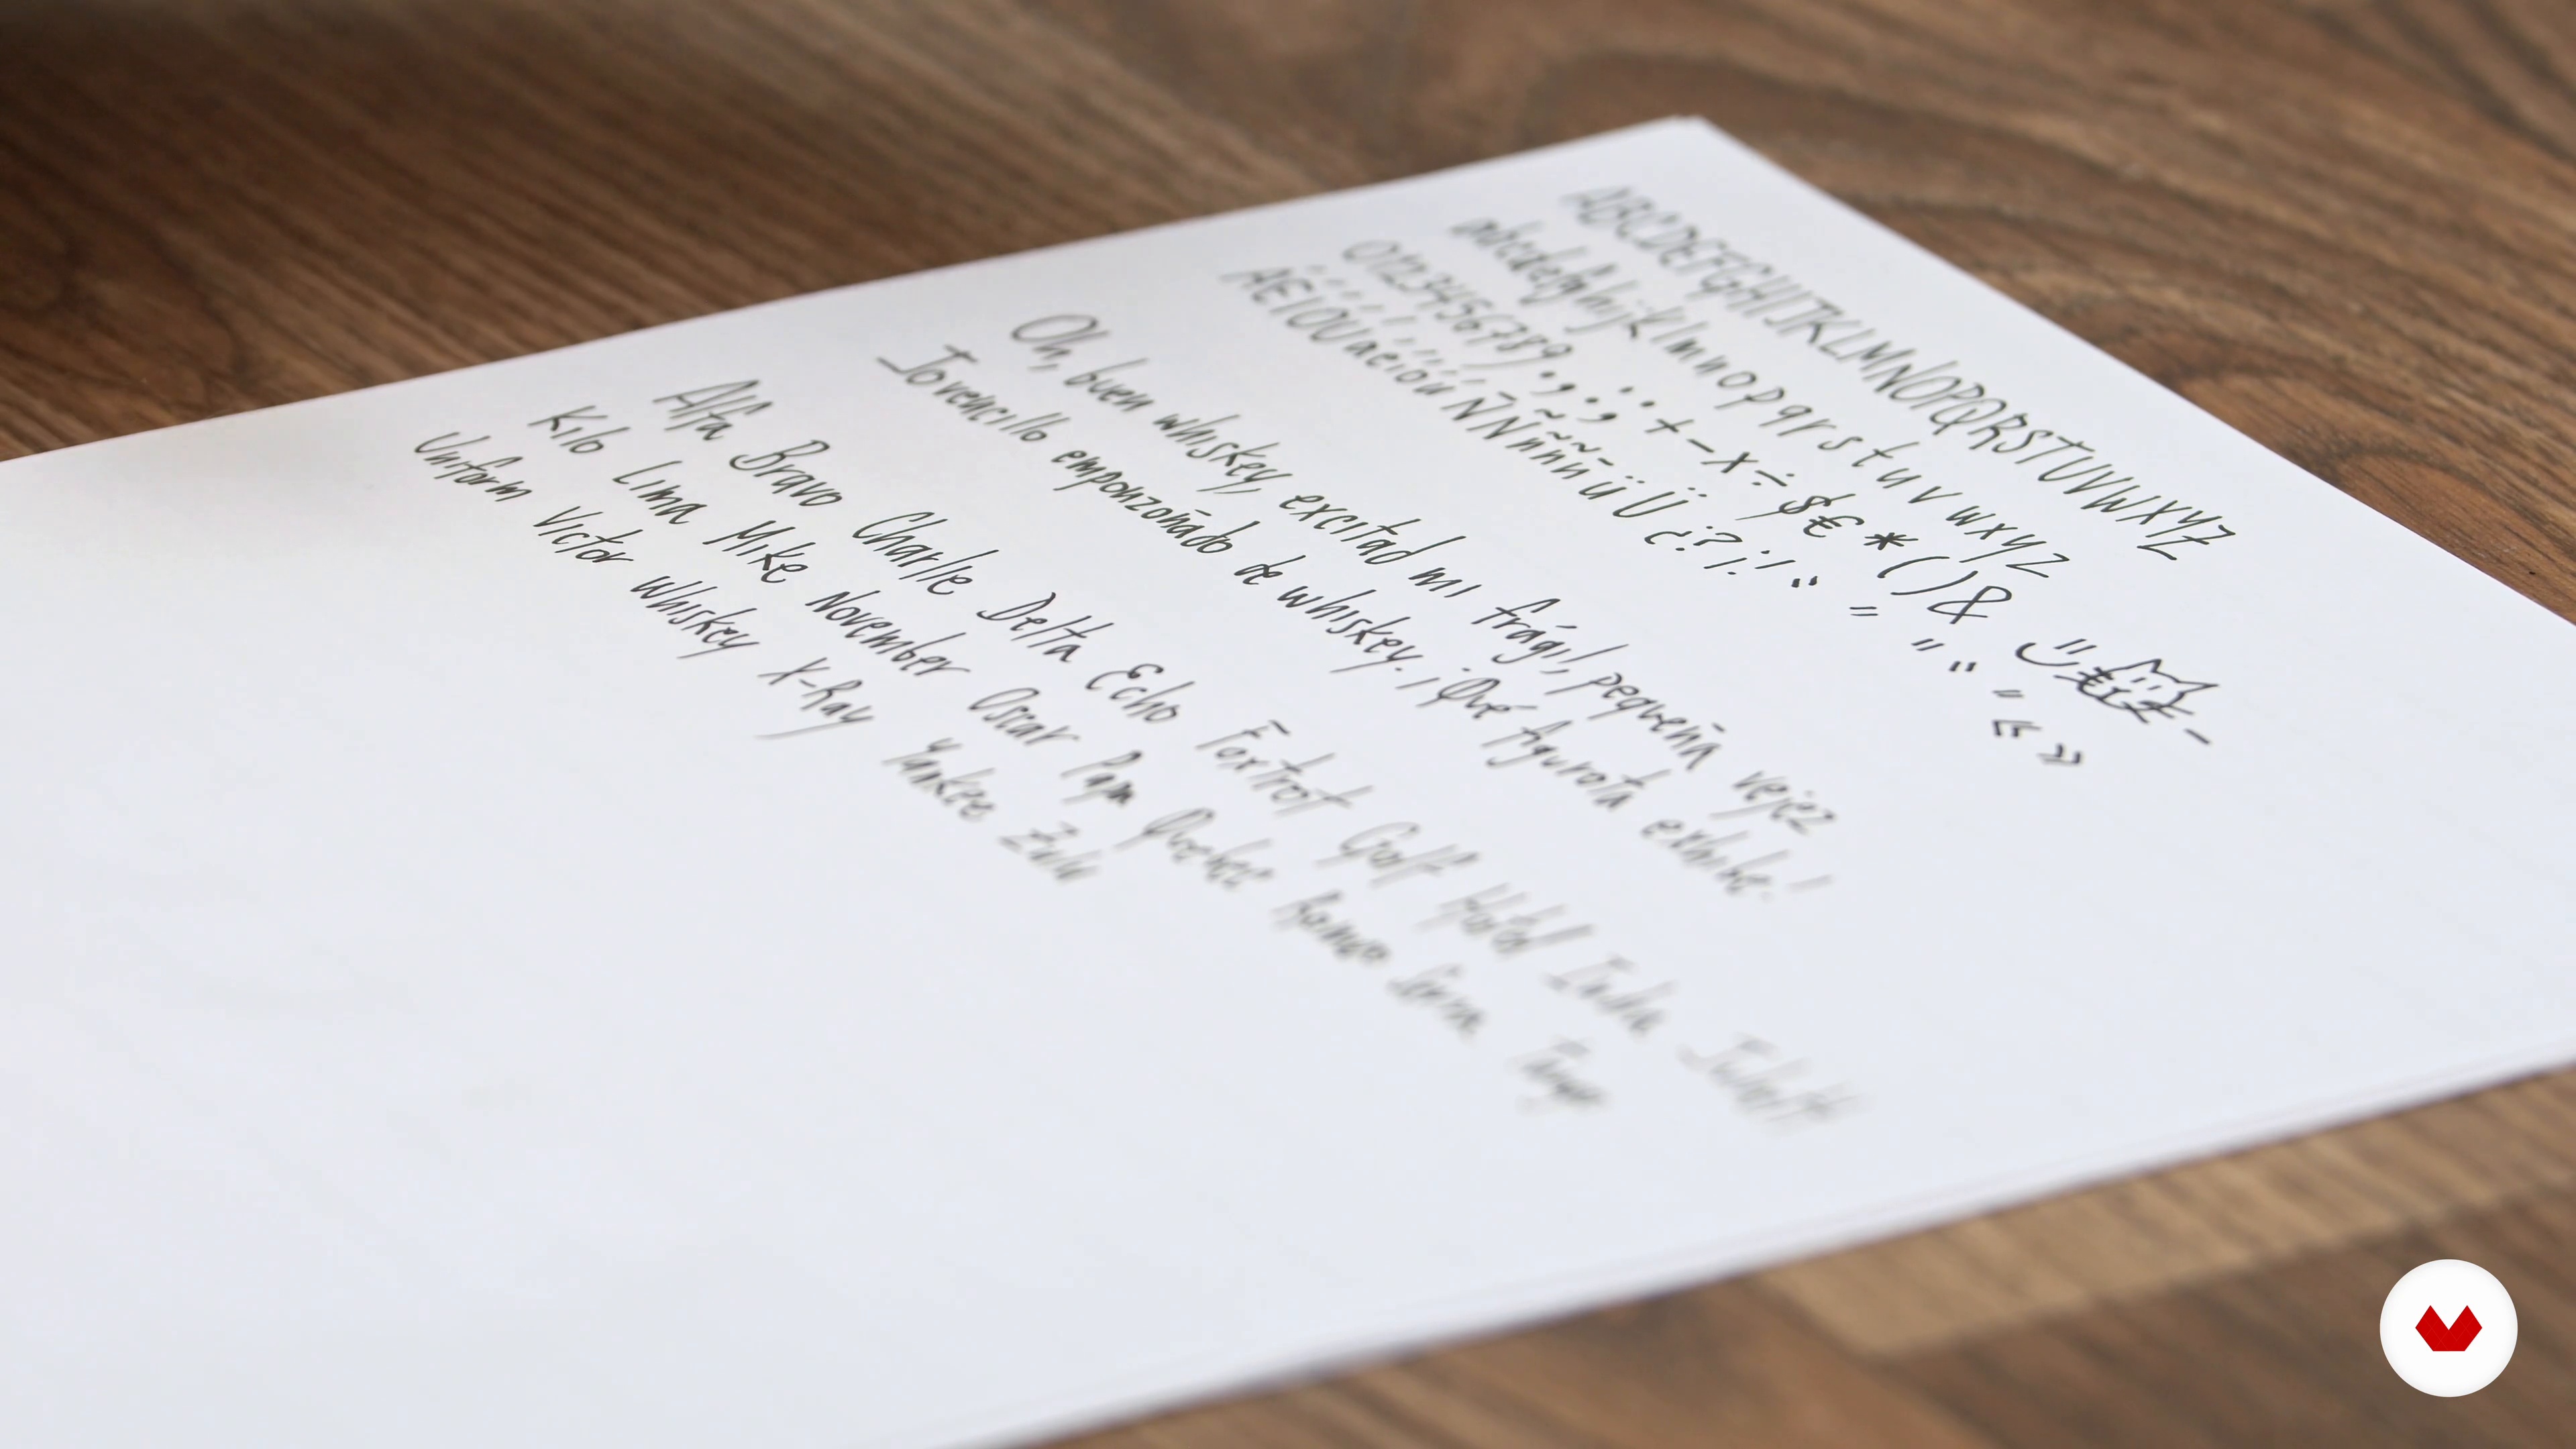 ABCDEFGHIJKLMNOPQRSTUVWXYZ
abcdefghijklmnopqrstuvwxyz
0123456789.,:;+-x÷$€*()&
ÁÉÍÓÚáéíóúÑÑññüÜ¿?¡!“ = " “ " « » -
Oh, buen whiskey, excitad mi frágil, pequeña vejez
Jovencillo emponzoñado de whiskey. ¡Qué figurota exhibe!
Alfa Bravo Charlie Delta Echo Foxtrot Golf Hotel India Juliett
Kilo Lima Mike November Oscar Papa Quebec Romeo Sierra Tango
Uniform Victor Whiskey X-Ray Yankee Zulu